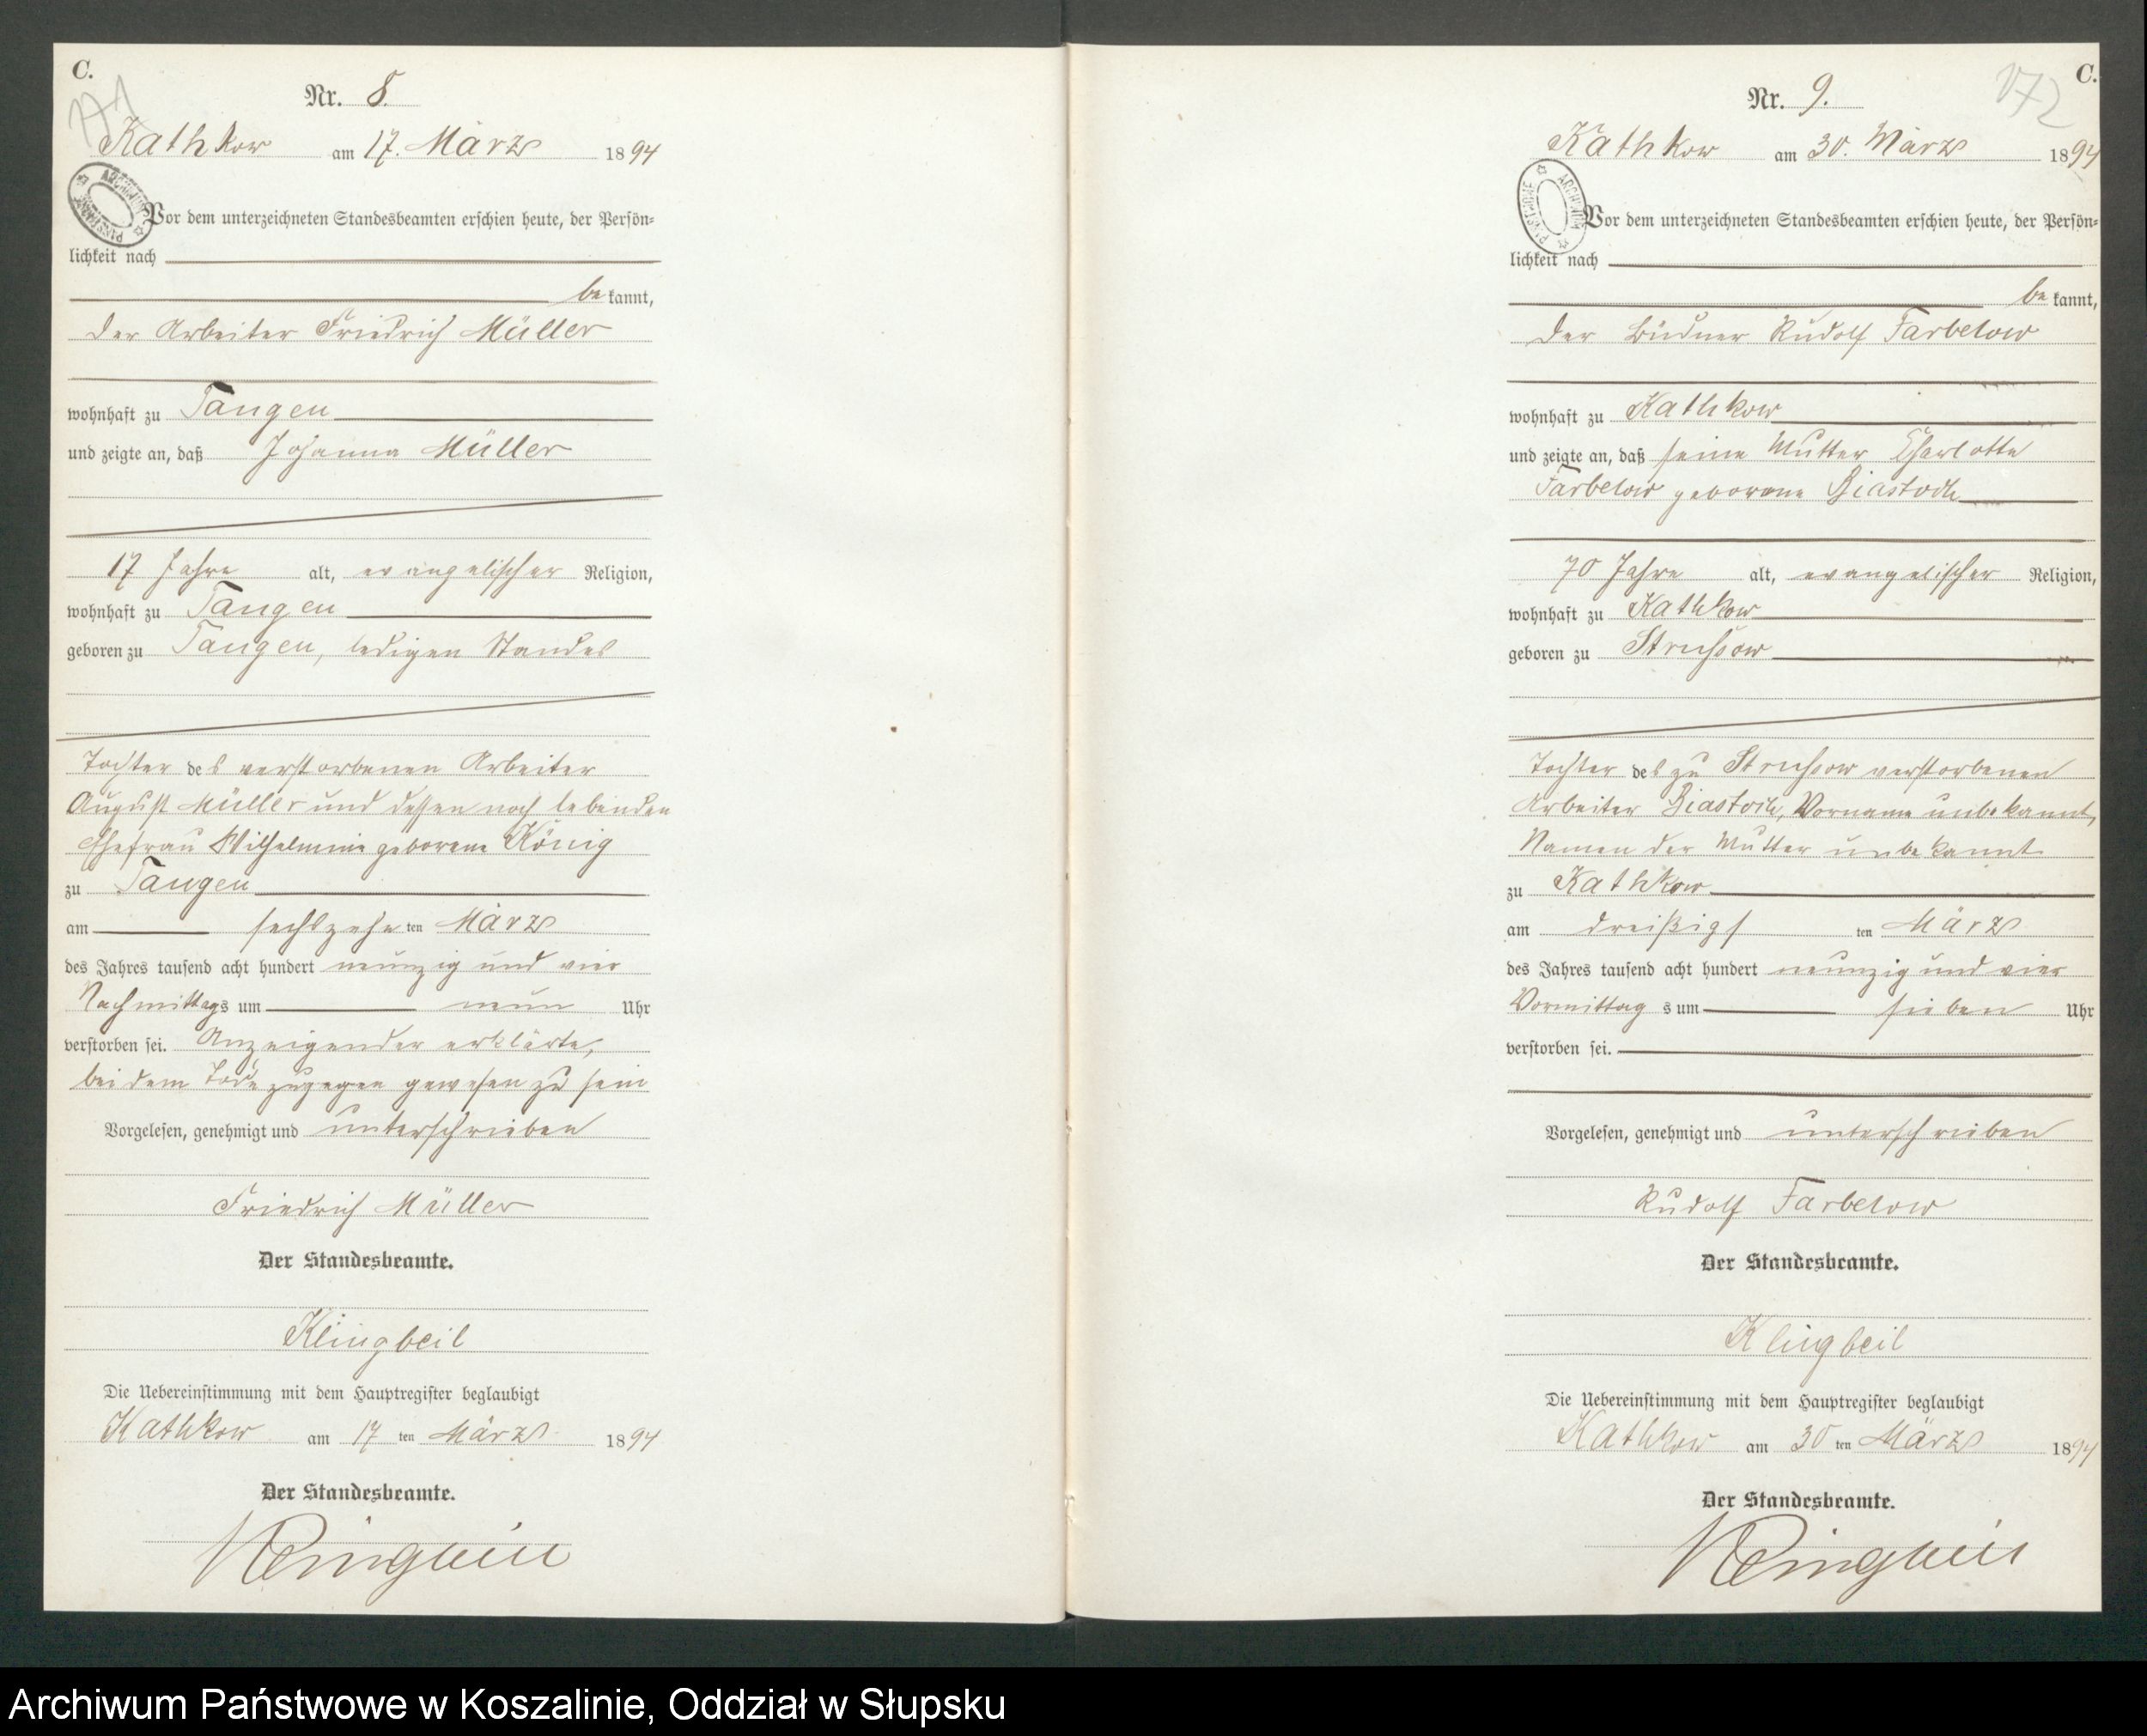 C.
171
Nr. 8.
Kathkow am 17. März 1894
ARCHIWUM PAŃSTWOWE
Vor dem unterzeichneten Standesbeamten erschien heute, der Persön-
lichkeit nach
be kannt,
der Arbeiter Friedrich Müller
wohnhaft zu Tangen
und zeigte an, daß Johanna Müller
17 Jahre alt, evangelischer Religion,
wohnhaft zu Tangen
geboren zu Tangen, ledigen Standes
Tochter des verstorbenen Arbeiter
August Müller und dessen noch lebenden
Ehefrau Wilhelmine geborene König
zu Tangen
am sechszehn ten März
des Jahres tausend acht hundert neunzig und vier
Nachmittags um neun Uhr
verstorben sei. Anzeigender erklärte,
bei dem Tode zugegen gewesen zu sein
Vorgelesen, genehmigt und unterschrieben
Friedrich Müller
Der Standesbeamte.
Klingbeil
Die Uebereinstimmung mit dem Hauptregister beglaubigt
Kathkow am 17 ten März 1894
Der Standesbeamte.
Klingbeil
C.
172
Nr. 9.
Kathkow am 30. März 1894
ARCHIWUM PAŃSTWOWE
Vor dem unterzeichneten Standesbeamten erschien heute, der Persön-
lichkeit nach
be kannt,
der Büdner Rudolf Farbelow
wohnhaft zu Kathkow
und zeigte an, daß seine Mutter Charlotte
Farbelow geborene Biastoch
70 Jahre alt, evangelischer Religion,
wohnhaft zu Kathkow
geboren zu Strussow
Tochter des zu Strussow verstorbenen
Arbeiter Biastoch, Vorname unbekannt,
Namen der Mutter unbekannt
zu Kathkow
am dreißigs ten März
des Jahres tausend acht hundert neunzig und vier
Vormittag s um sieben Uhr
verstorben sei.
Vorgelesen, genehmigt und unterschrieben
Rudolf Farbelow
Der Standesbeamte.
Klingbeil
Die Uebereinstimmung mit dem Hauptregister beglaubigt
Kathkow am 30 ten März 1894
Der Standesbeamte.
Klingbeil
Archiwum Państwowe w Koszalinie, Oddział w Słupsku